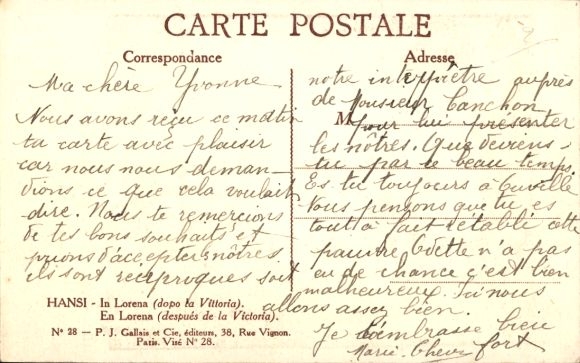 CARTE POSTALE
Correspondance
Ma chère Yvonne
Nous avons reçu ce matin
ta carte avec plaisir
car nous nous deman-
dions ce que cela voulait
dire. Nous te remercions
de tes bons souhaits et
prions d'accepter nôtres,
ils sont réciproques soit
Adresse
notre interprètre auprès
de Monsieur
M pour lui présenter
les nôtres. Que deviens-
tu par ce beau temps.
Es tu toujours à
tous pensons que tu es
tout à fait rétablé cette
pauvre Odette n'a pas
eu de chance ç'est bien
malheureux. Ici nous
allons assez bien.
Je t'embrasse bien
fort
Marie
HANSI - In Lorena (dopo la Vittoria).
En Lorena (después de la Victoria).
N° 28 — P. J. Gallais et Cie, éditeurs, 38, Rue Vignon.
Paris. Visé N° 28.